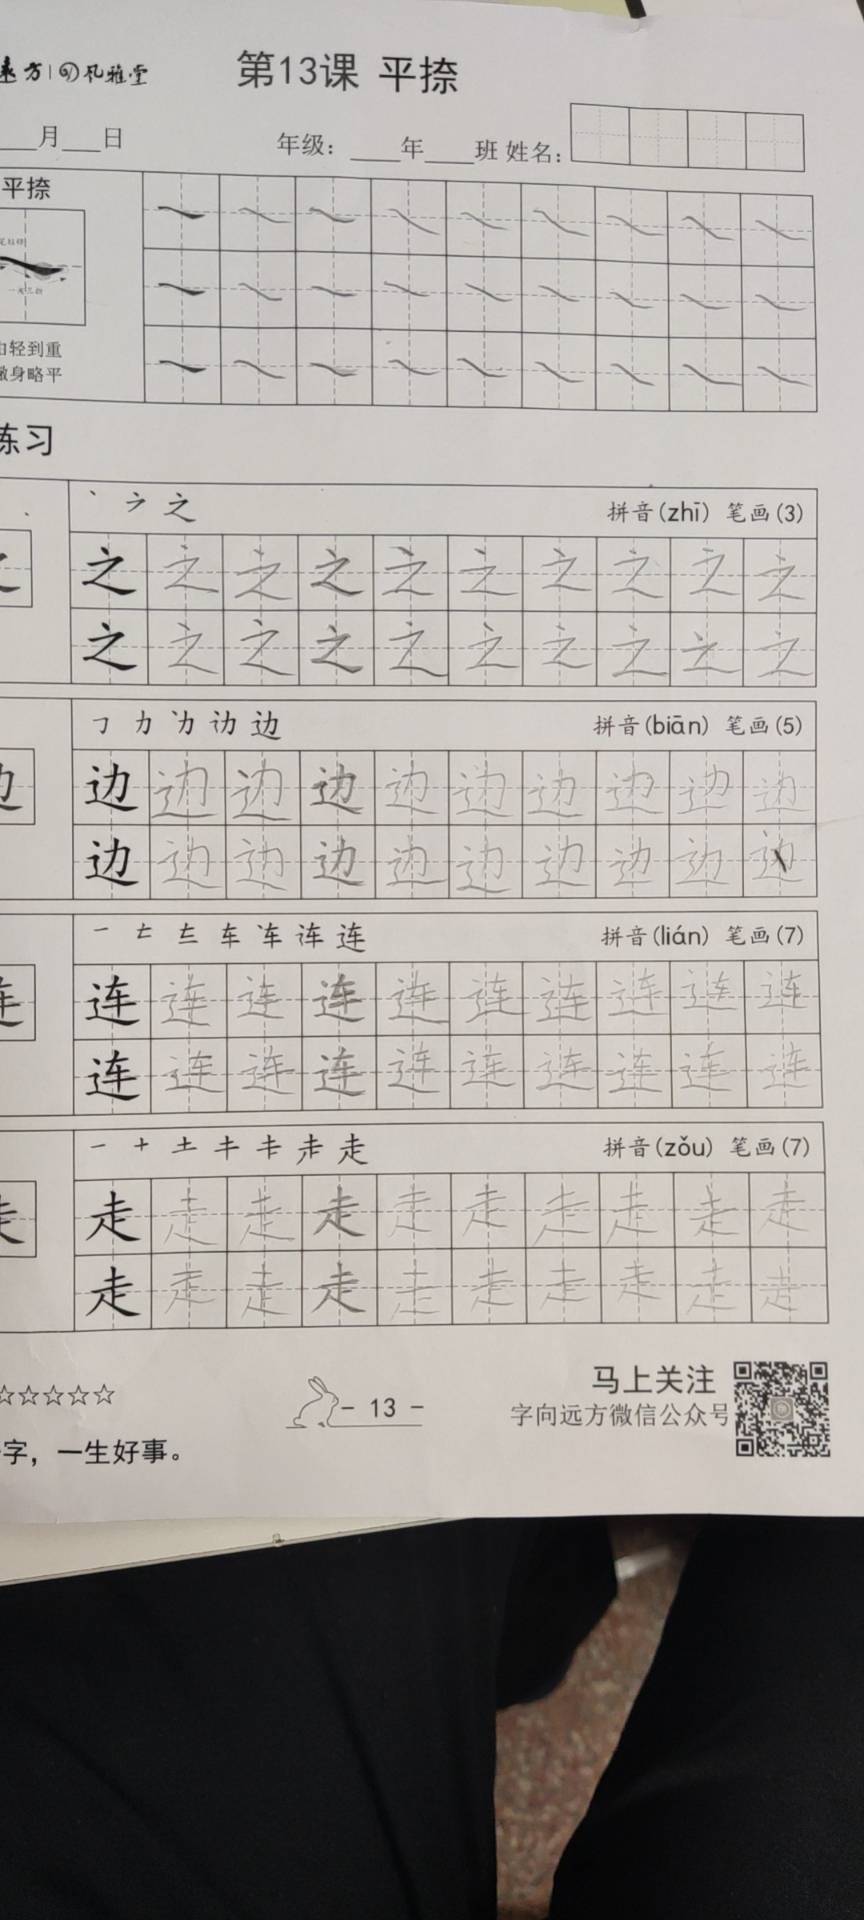 方 风雅堂
第13课 平捺
月 日 年级： 年 班 姓名：
平捺
由轻到重
身略平
练习
丶 之 拼音(zhī) 笔画(3)
之 之 之 之 之 之 之 之 之 之
之 之 之 之 之 之 之 之 之 之
㇆ 力 边 拼音(biān) 笔画(5)
边 边 边 边 边 边 边 边 边 边
边 边 边 边 边 边 边 边 边 边
一 车 连 拼音(lián) 笔画(7)
连 连 连 连 连 连 连 连 连 连
连 连 连 连 连 连 连 连 连 连
一 十 土 走 拼音(zǒu) 笔画(7)
走 走 走 走 走 走 走 走 走 走
走 走 走 走 走 走 走 走 走 走
☆☆☆☆☆
- 13 -
马上关注
字向远方微信公众号
字，一生好事。